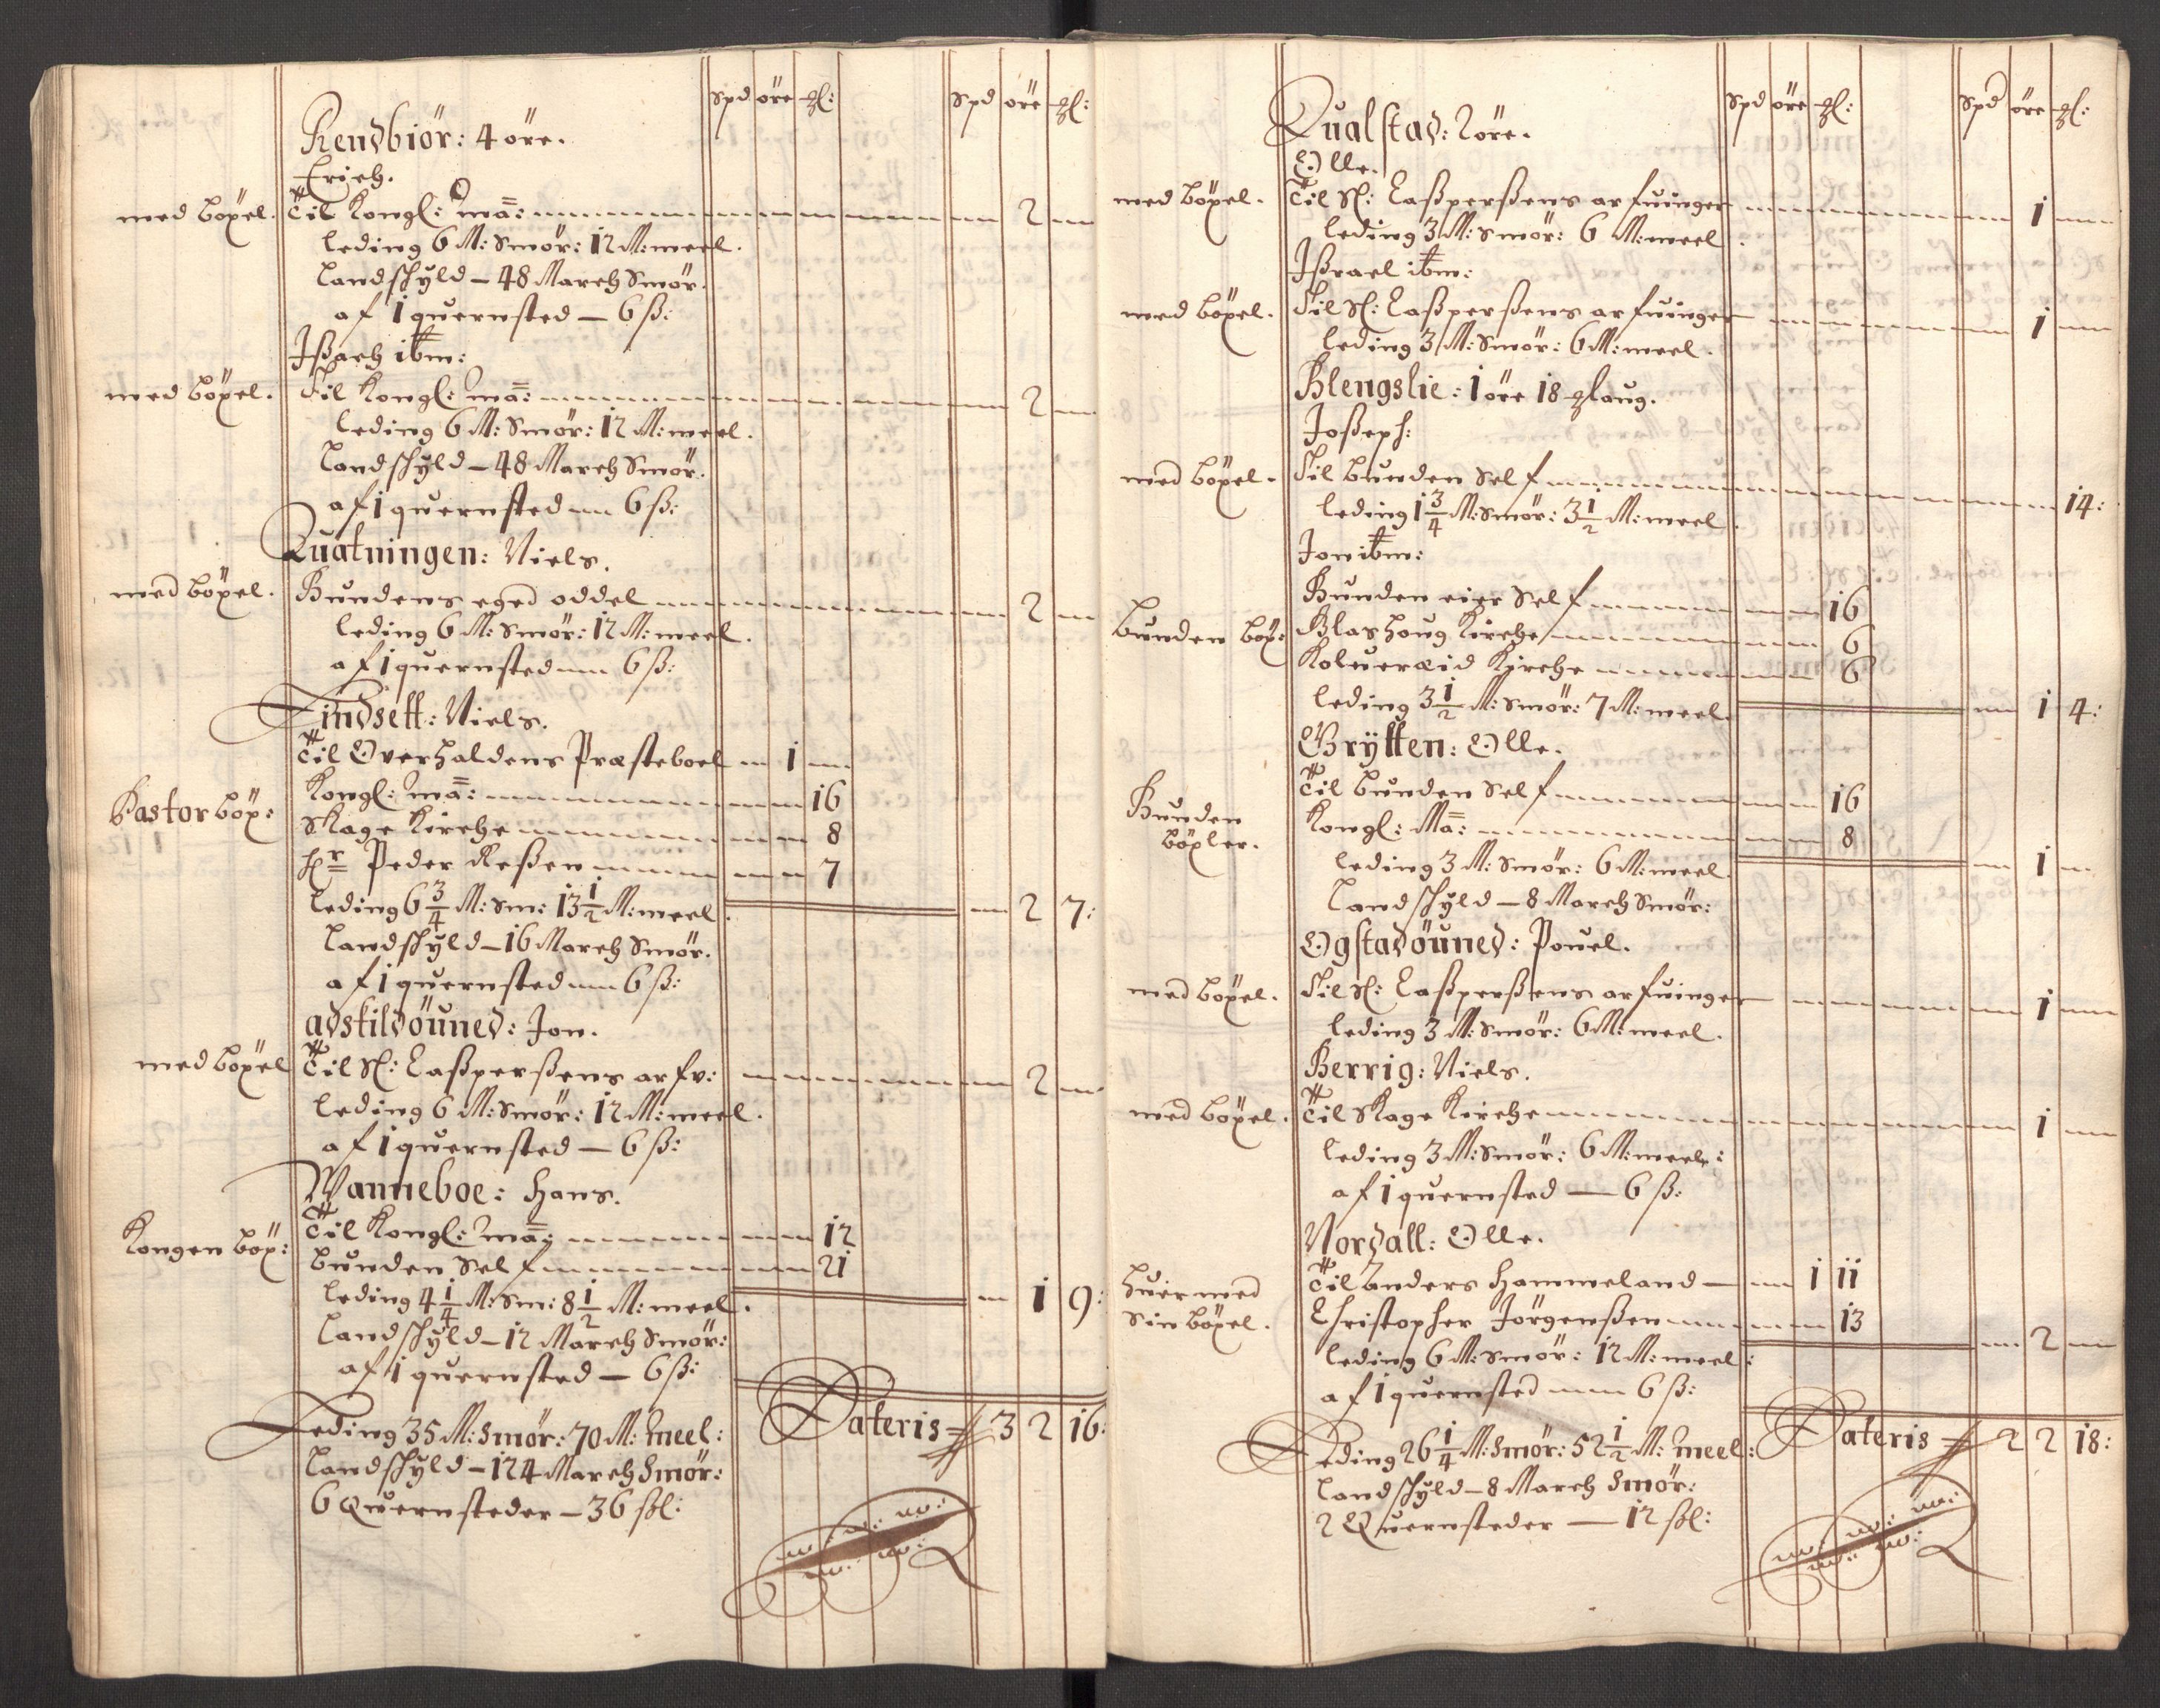 Spd öre gl: Spd öre gl:
Rendbiör: 4 öre.
Erich.
med böxel. Til Kongl: Ma: 2
leding 6 M: Smör: 12 M: meel.
Landschyld – 48 March Smör.
af 1 quernsted – 6 ß:
Ißach ibm:
med böxel. Til Kongl: Ma: 2
leding 6 M: Smör: 12 M: meel.
Landschyld – 48 March Smör.
af 1 quernsted 6 ß:
Quatningen: Niels.
med böxel. Bundens eged oddel 2
leding 6 M: Smör: 12 M: meel.
af 1 quernsted 6 ß:
Findsett: Niels.
Til Overhaldens Præsteboel 1
Kongl: Ma: 16
Pastor böx: Skage Kirche 8
Hr Peder Reßen 7
leding 6 3/4 M: Sm: 13 1/2 M: meel. 2 7:
Landschyld – 16 March Smör.
af 1 quernsted 6 ß:
adskildöuned: Jon.
med böxel Til Sl: Caßperßens arfv: 2
leding 6 M: Smör: 12 M: meel.
af 1 quernsted – 6 ß:
Wanneboe: Hans.
Kongen böx: Til Kongl: Ma: 12
bunden Self 21
leding 4 1/4 M: Sm: 8 1/2 M: meel. 1 9:
Landschyld – 12 March Smör:
af 1 quernsted – 6 ß:
Leding 35 M: Smör: 70 M: Meel: Lateris 3 2 16:
Landschyld – 124 March Smör:
6 Quernsteder – 36 ßl:
Spd öre gl: Spd öre gl:
Qualstad: 2 öre.
Olle.
med böxel. Til Sl: Caßperßens arfuinger 1
leding 3 M: Smör: 6 M: meel.
Ißrael ibm:
med böxel. Til Sl: Caßperßens arfuinger 1
leding 3 M: Smör: 6 M: meel.
Blengslie: 1 öre 18 glaug.
Joßeph:
med böxel. Til bunden Self 14:
leding 1 3/4 M: Smör: 3 1/2 M: meel.
Jon ibm:
Bunden eier Self 16
bunden böx: Blashoug Kirche 6
Kolueræid Kirche 6
leding 3 1/2 M: Smör: 7 M: meel. 1 4:
Grytten: Olle.
Til bunden Self 16
Bunden böxler. Kongl: Ma: 8
leding 3 M: Smör: 6 M: meel. 1
Landschyld – 8 March Smör:
Ogstadöuned: Pouel.
med böxel. Til Sl: Caßperßens arfuinger 1
leding 3 M: Smör: 6 M: meel.
Berrig: Niels.
med böxel. Til Skage Kirche 1
leding 3 M: Smör: 6 M: meel:
af 1 quernsted – 6 ß:
Nordall: Olle.
huer med Til Anders Hammeland – 1 11
Sin böxel. Christopher Jörgenßen 13
leding 6 M: Smör: 12 M: meel: 2
af 1 quernsted 6 ß:
Leding 26 1/4 M: Smör: 52 1/2 M: Meel: Lateris 2 2 18:
Landschyld – 8 March Smör:
2 Quernsteder – 12 ßl: